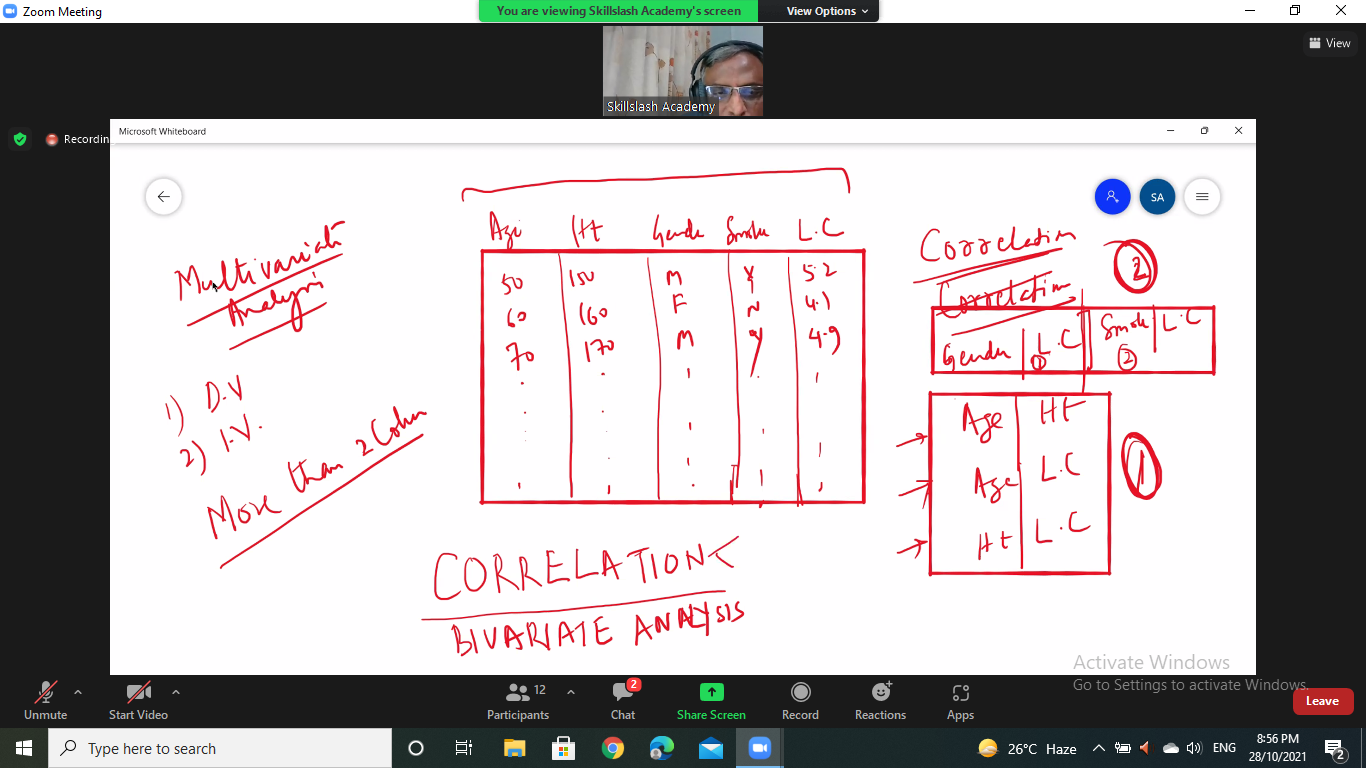 Zoom Meeting
You are viewing Skillslash Academy's screen
View Options
View
Skillslash Academy
Recording
Microsoft Whiteboard
SA
Multivariate
Analysis
1) D.V
2) I.V.
More than 2 Column
Age Ht Gender Smoke L.C
50 150 M Y 5.2
60 160 F N 4.1
70 170 M Y 4.9
CORRELATION
BIVARIATE ANALYSIS
Correlation
2
Correlation
Gender L.C Smoke L.C
1 2
Age Ht
Age L.C
Ht L.C
1
Activate Windows
Go to Settings to activate Windows.
Unmute
Start Video
12
Participants
2
Chat
Share Screen
Record
Reactions
Apps
Leave
Type here to search
26°C Haze
ENG
8:56 PM
28/10/2021
2